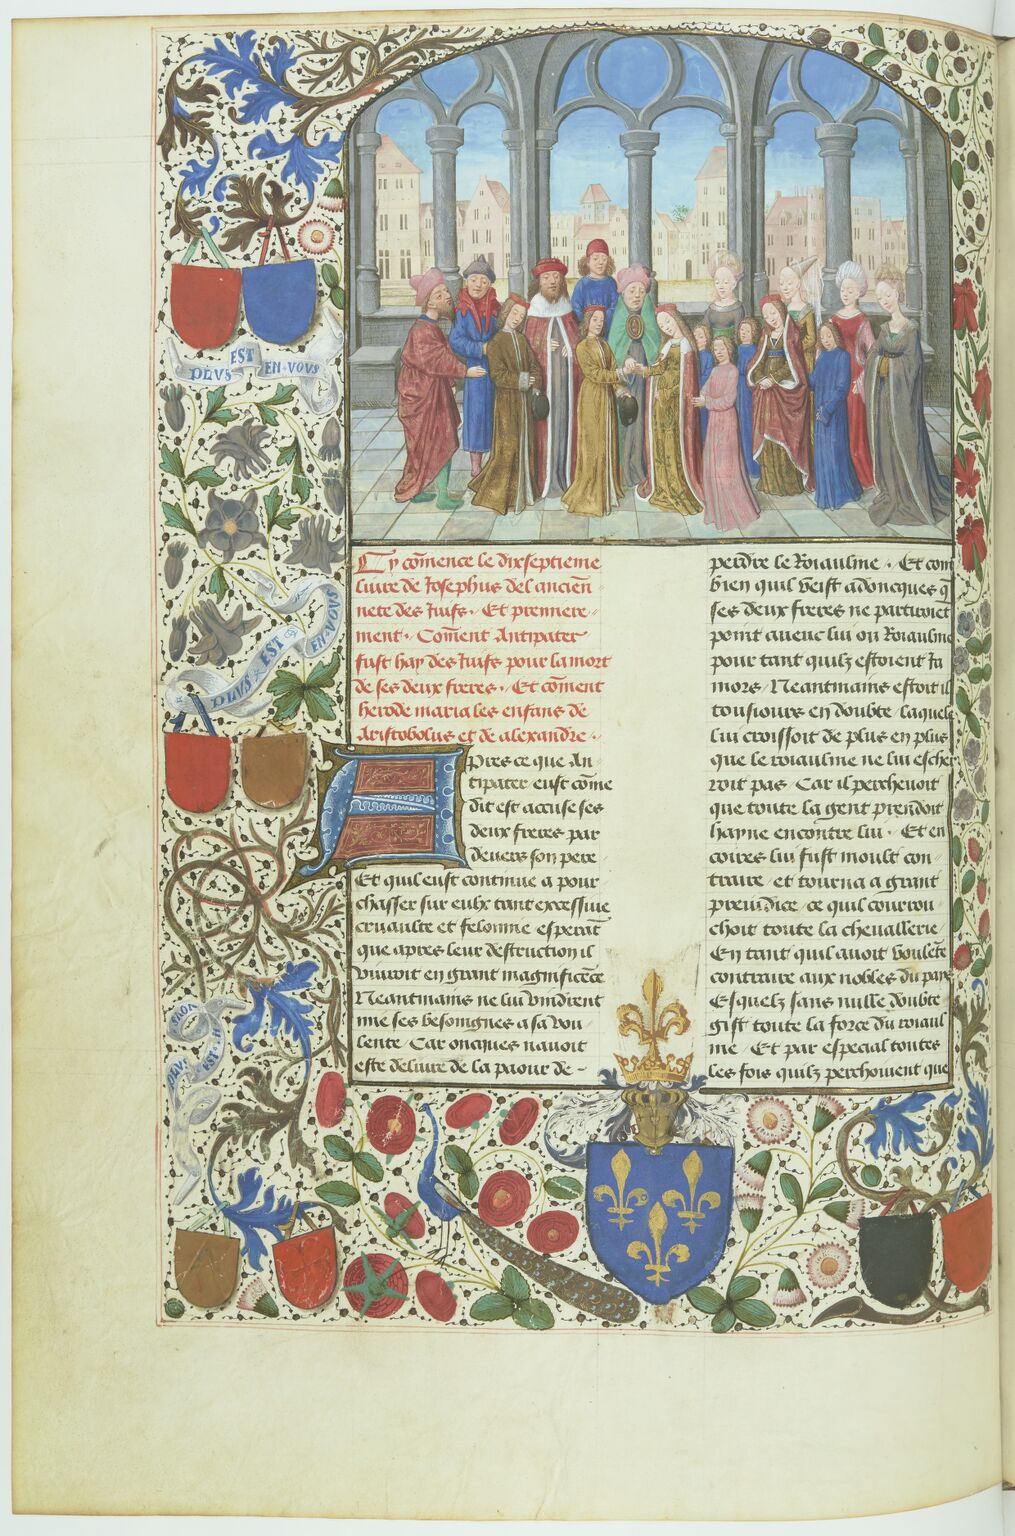 PLVS EST EN VOVS
PLVS EST EN VOVS
PLVS EST EN VOVS
Cy cōmence le dixseptieme
liure de Josephus del ancien̄
nete des Juifs . Et premiere
ment . Coment Antipater
fust hay des Juifs pour la mort
de ses deux freres . Et cōment
herode maria les enfans de
Aristobolus et de alexandre .
Apres ce que An
tipater eust cōme
dit est accuse ses
deux freres par
deuers son pere
Et quil eust continue a pour
chasser sur eulx tant excessiue
cruaulte et felonnie esperāt
que apres leur destruction il
viuroit en grant magnificēce
Neantmains ne lui vindrent
mie ses besoingnes a sa vou
lente / Car oncques nauoit
este deliure de la paour de
perdre le Roiaulme . Et com
bien quil veist adoncques q̄
ses deux freres ne partiroiēt
point auecc lui ou Roiaulme
pour tant quilz estoient Ja
mors / Neantmains estoit il
tousiours en doubte laquele
lui croissoit de plus en plus
que le roiaulme ne lui escher
roit pas / Car il percheuoit
que toute la gent prendoit
hayne encontre lui . Et en
coires lui fust moult con
traire / et tourna a grant
preiudice / ce quil courrou
choit toute la cheuallerie
En tant quil auoit voulēte
contraire aux nobles du pays
Esquelz sans nulle doubte
gist toute la force du roiaul
me / Et par especial toutes
les fois quilz percheuoient que